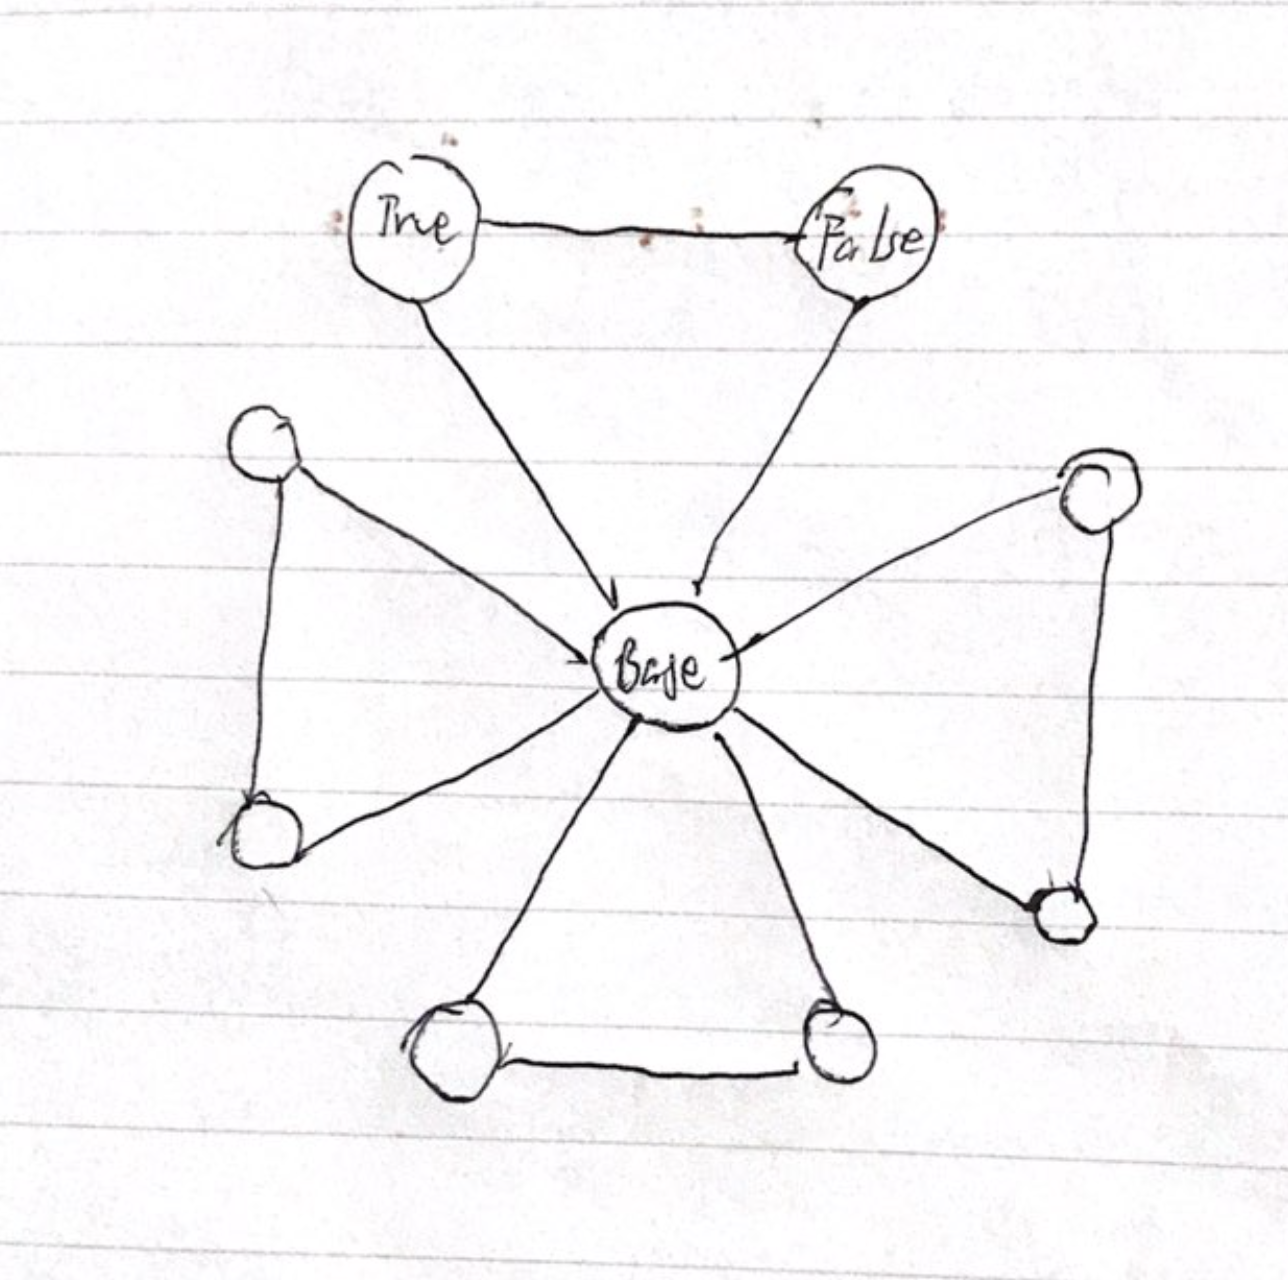 True
False
Base